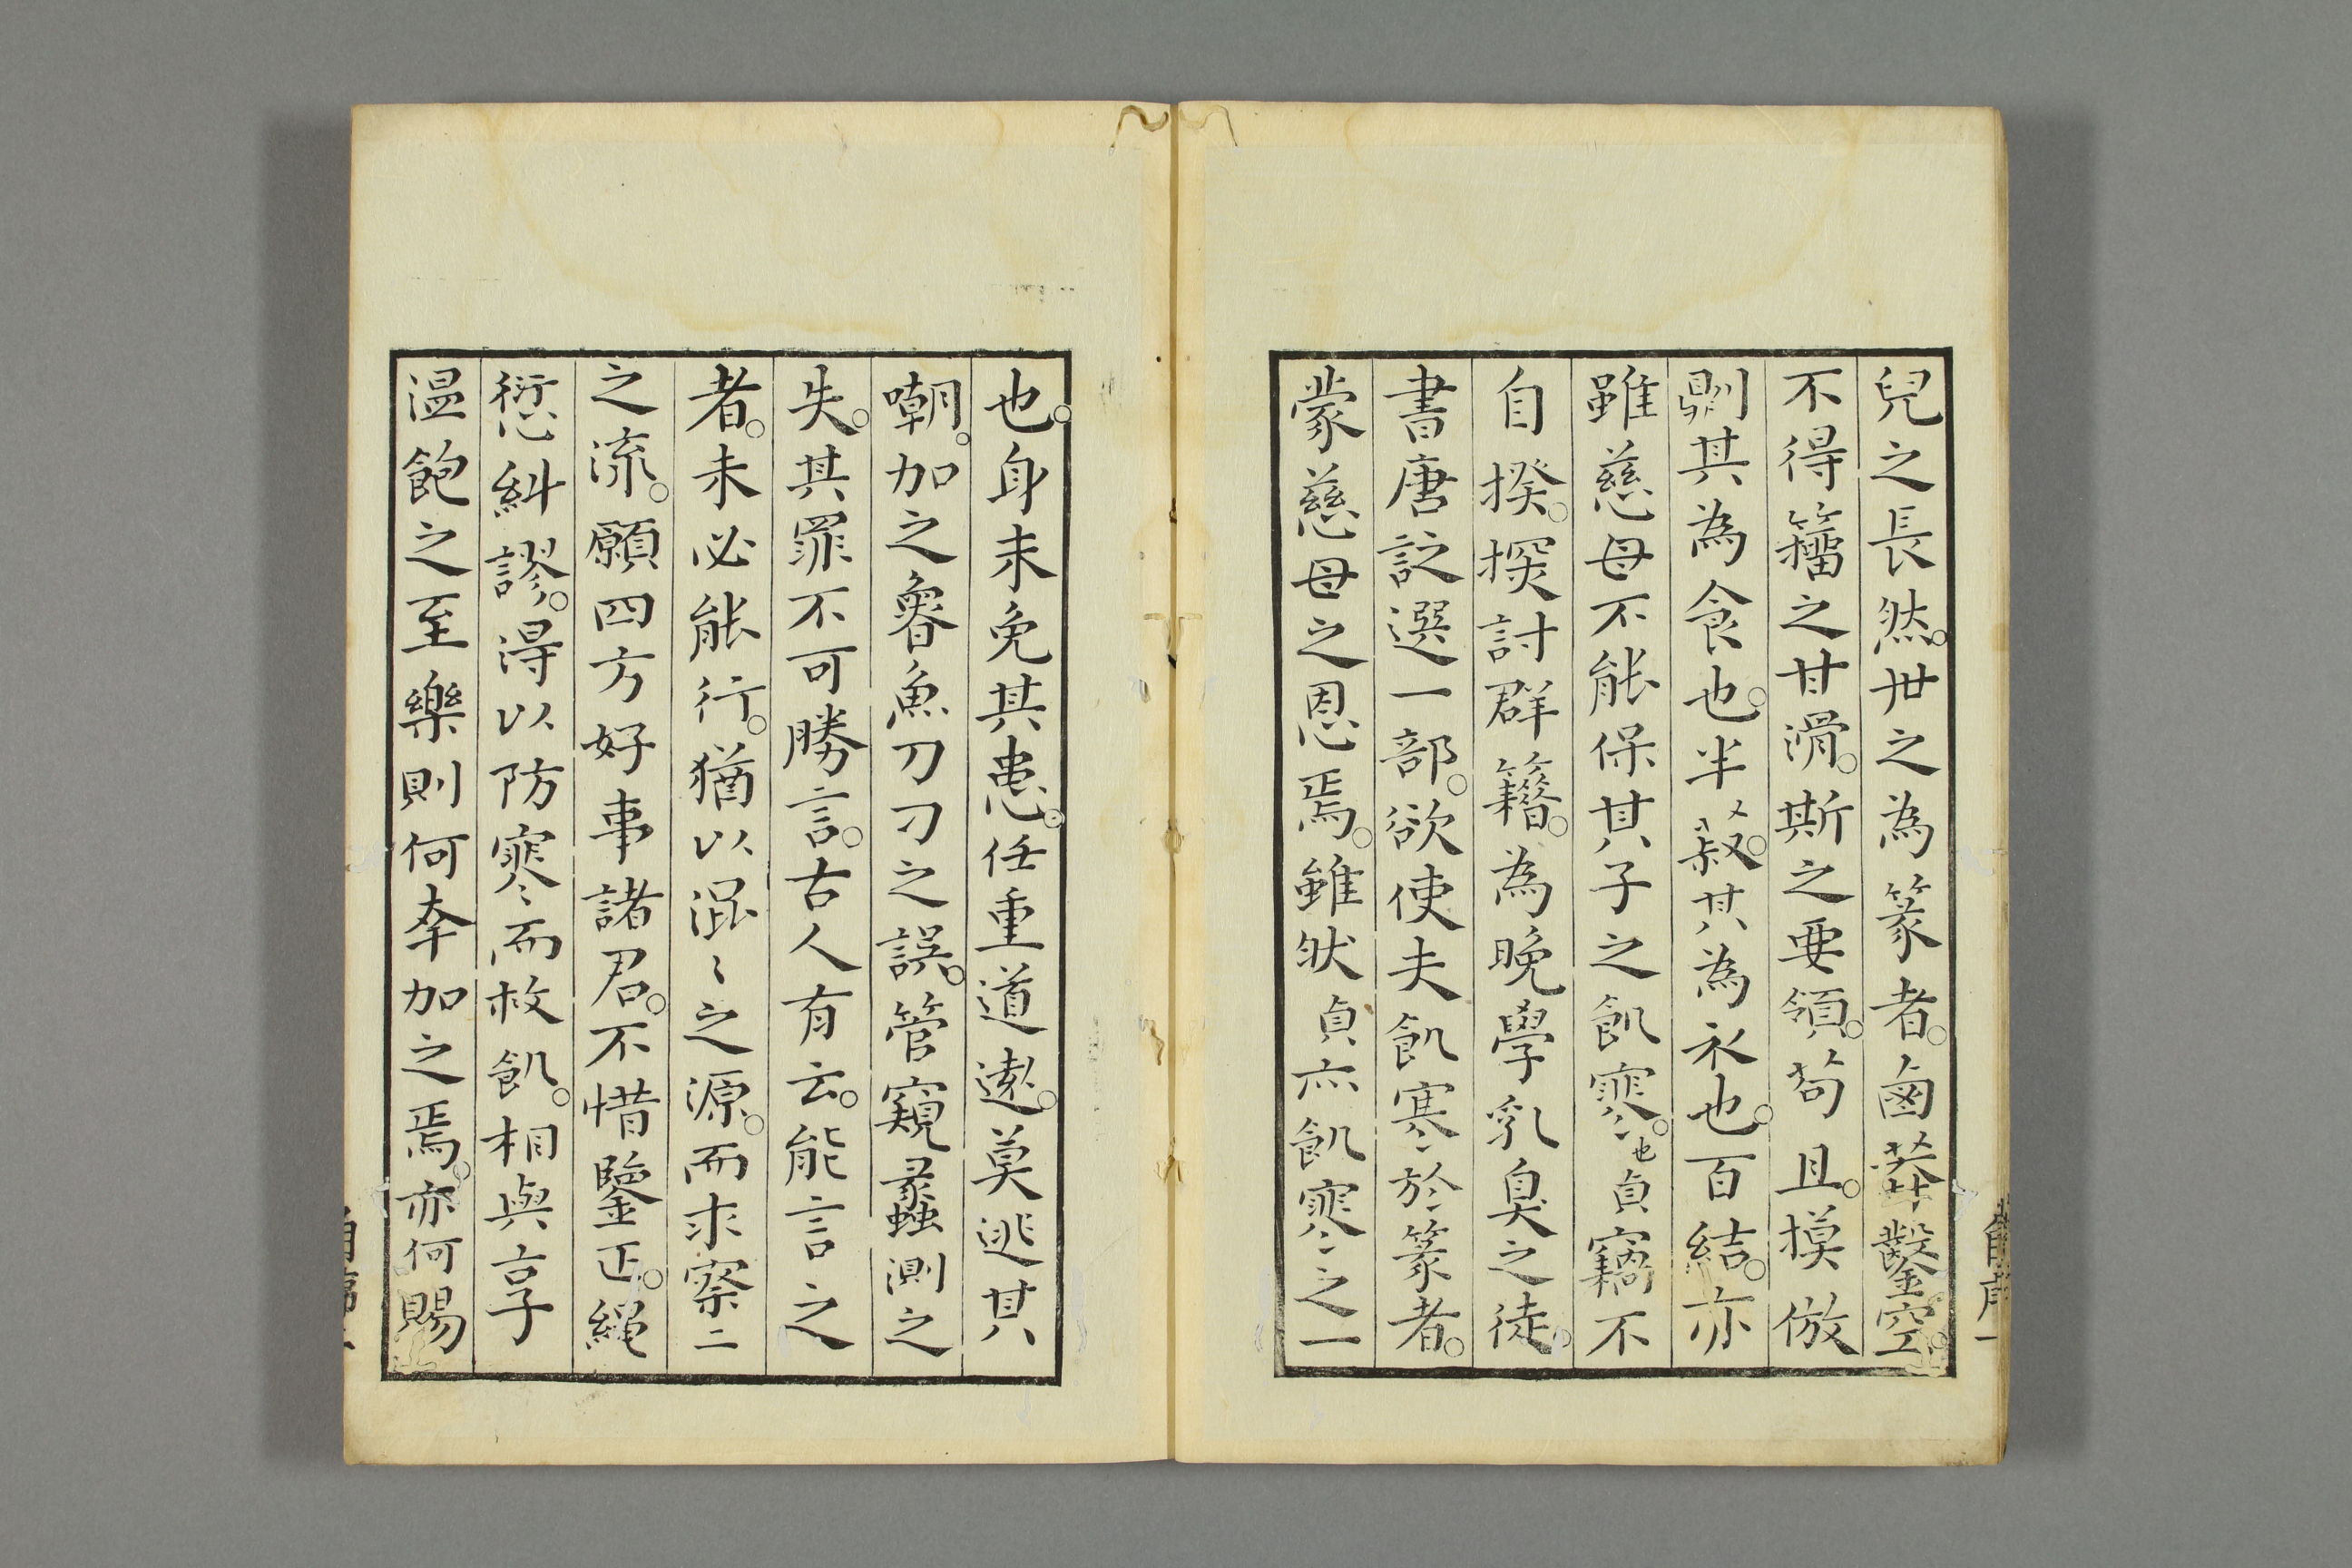 兒之長然。世之為篆者。鹵莽鑿空。
不得籀之甘滑。斯之要領。苟且。摸倣
其為食也。半叔其為衣也。百結。亦
雖慈母不能保其子之飢寒。也貞竊不
自揆。探討群籍。為晚學乳臭之徒。
書唐詩選一部。欲使夫飢寒於篆者。
蒙慈母之恩焉。雖然貞亦飢寒之一
也。身未免其患。任重道遠。莫逃其
嘲。加之魯魚刀刁之誤。管窺蠡測之
失。其罪不可勝言。古人有云。能言之
者。未必能行。猶以混〻之源。而求察二
之流。願四方好事諸君。不惜鑒正。繩
愆糾謬。得以防寒而救飢。相與享
温飽之至樂則何幸加之焉。亦何賜